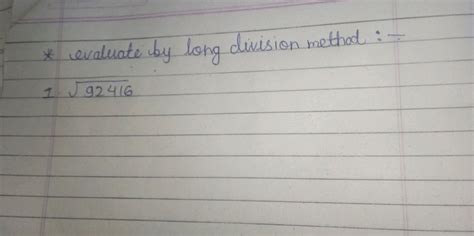 * evaluate by long division method :-
1 √92416